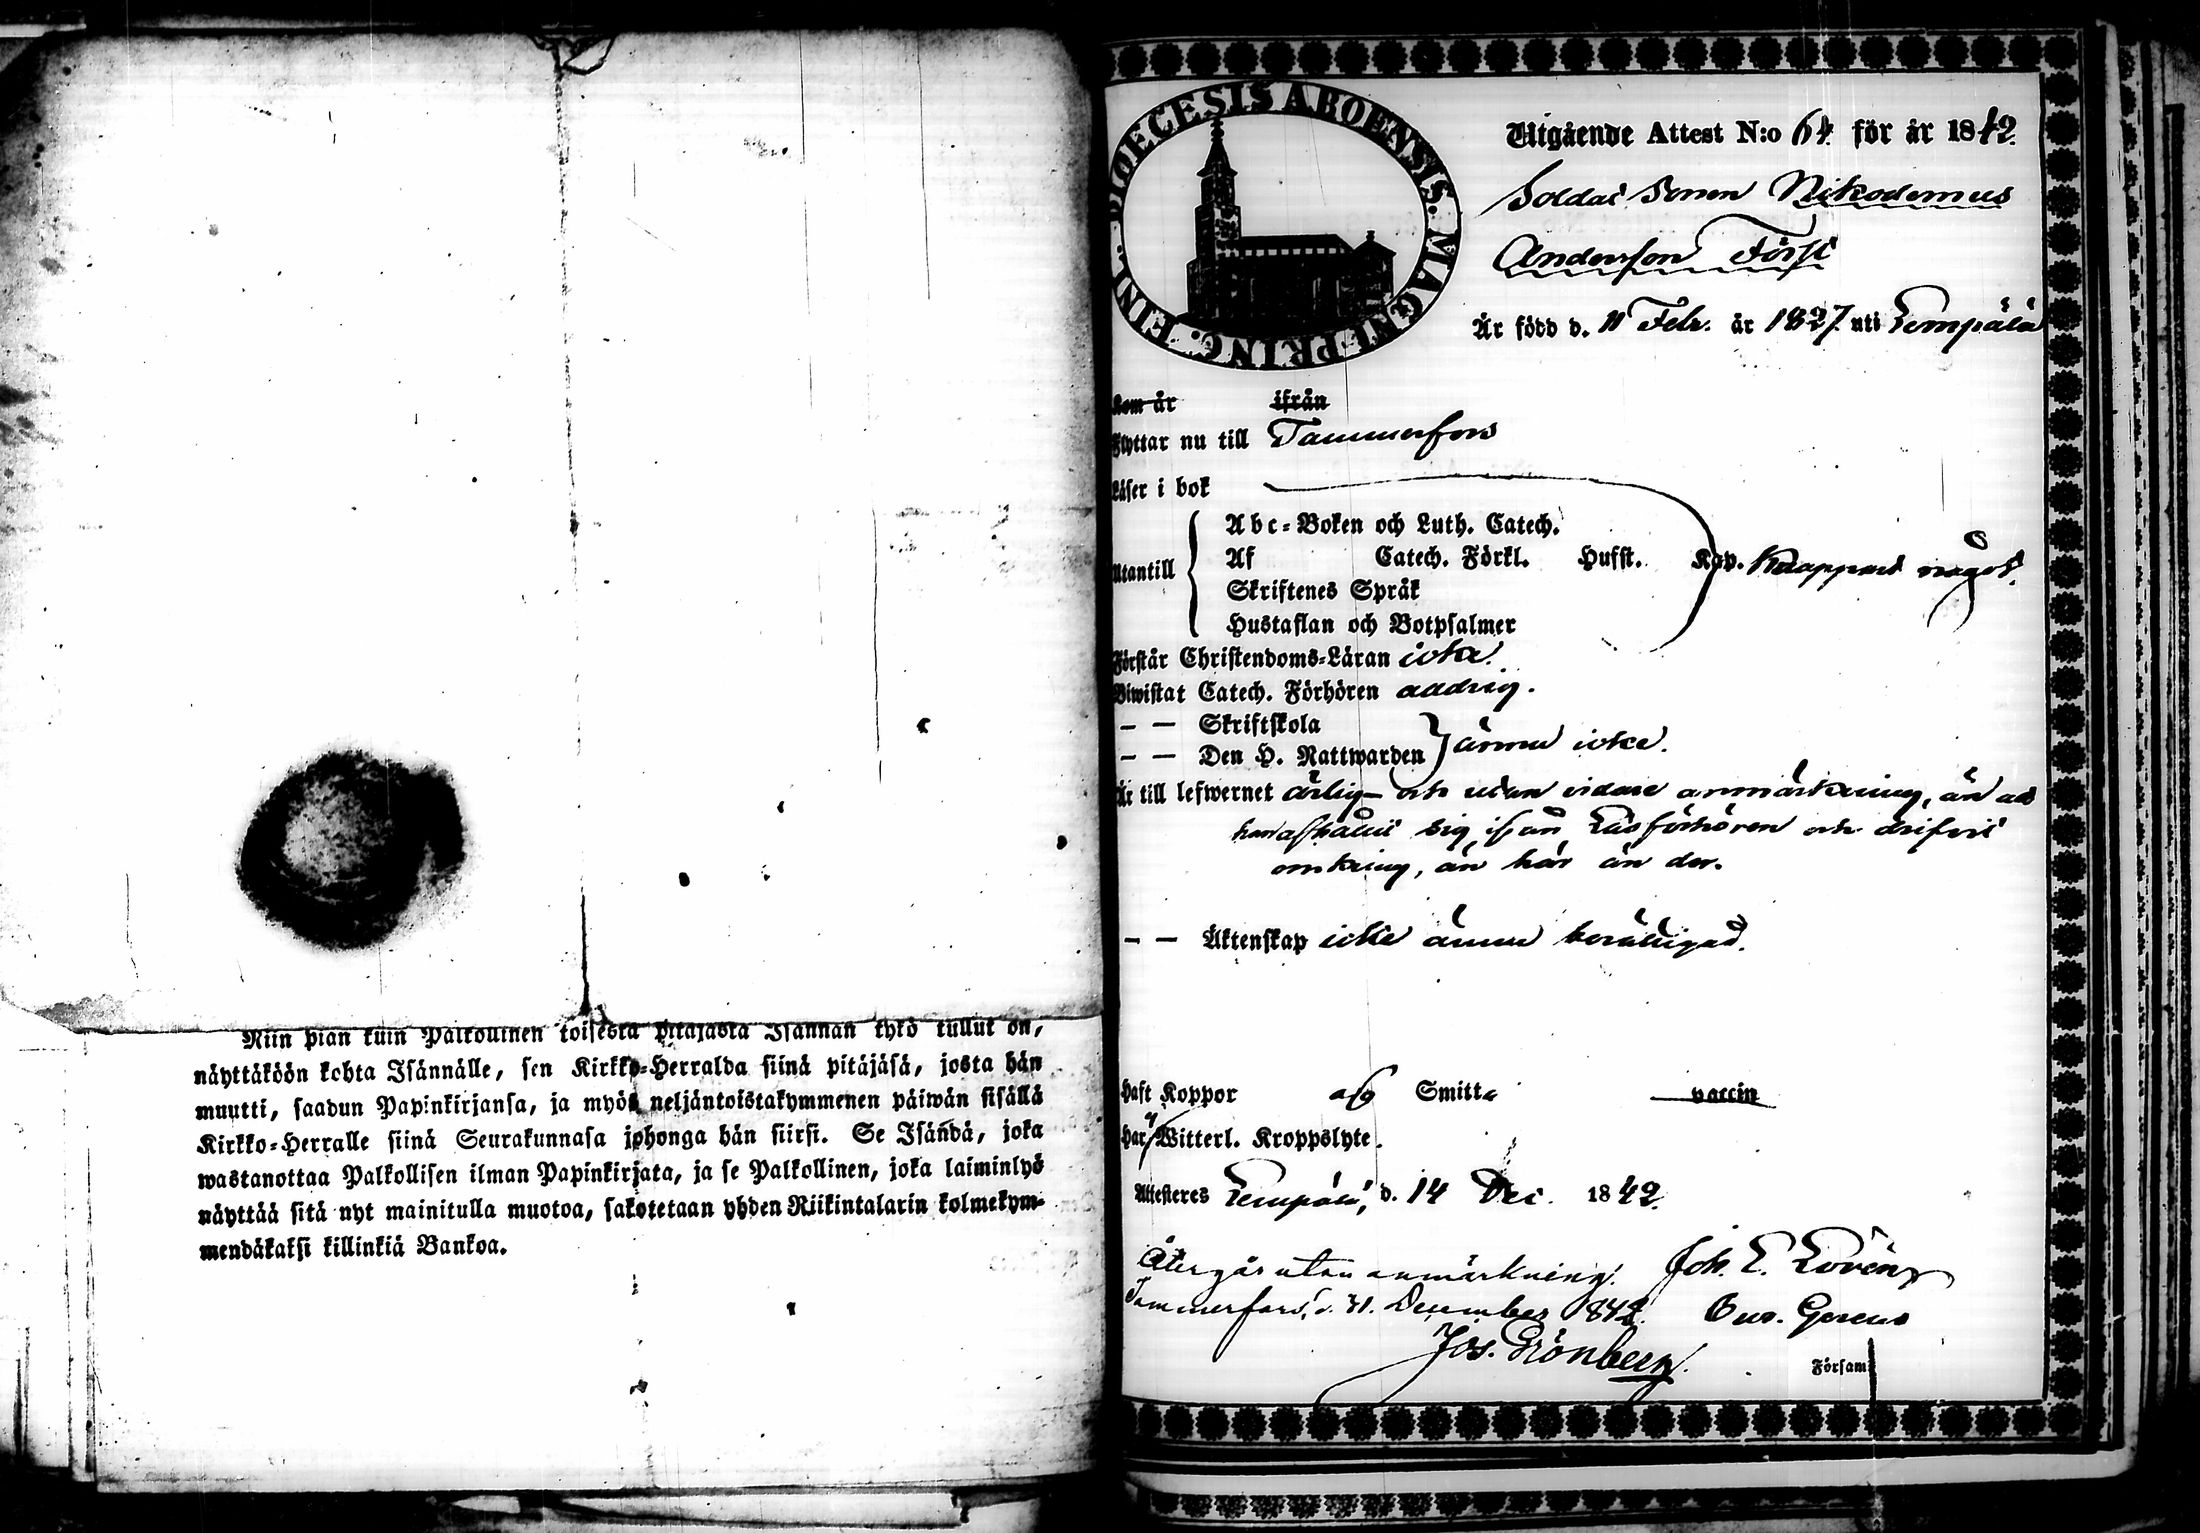 Niin pian kuin Palkollinen toisesta pitäjästä Isännän tykö tullut on,
näyttäköön kohta Isännälle, sen Kirkko-Herralda siinä pitäjäsä, josta hän
muutti, saadun Papinkirjansa, ja myös neljäntoistakymmenen päiwän sisällä
Kirkko-Herralle siinä Seurakunnasa johonga hän siirsi. Se Isändä, joka
wastanottaa Palkollisen ilman Papinkirjata, ja se Palkollinen, joka laiminlyö
näyttää sitä nyt mainitulla muotoa, sakotetaan yhden Riikintalarin kolmekym-
mendäkaksi killinkiä Bankoa.
DIOECESIS ABOENSIS. MAGNI PRINC. FINL.
Utgående Attest N:o 64 för år 1842.
Soldat Sonen Nikodemus
Andersson Först
Är född d. 11 Febr. år 1827 uti Lempälä
Kom år ifrån
Flyttar nu till Tammerfors
Läser i bok
Abc-Boken och Luth. Catech.
Utantill Af Catech. Förkl. Husst. Kap. Knappast något.
Skriftenes Språk
Hustaflan och Botpsalmer
Förstår Christendoms-Läran icke.
Biwistat Catech. Förhören aldrig.
— — Skriftskola
— — Den H. Nattwarden ännu icke.
Är till lefwernet ärlig och utan vidare anmärkning, än att
han afhållit sig ifrån Läsförhören och drifvit
omkring, än här än der.
— — Äktenskap icke ännu berättigad.
Haft Koppor af Smitta vaccin
Har Witterl. Kroppslyte.
Attesteres Lempälä, d. 14 Dec. 1842.
Återgår utan anmärkning. Joh. E. Lovén
Tammerfors, d. 31. December 1842.
Jos. Grönberg.
Församl